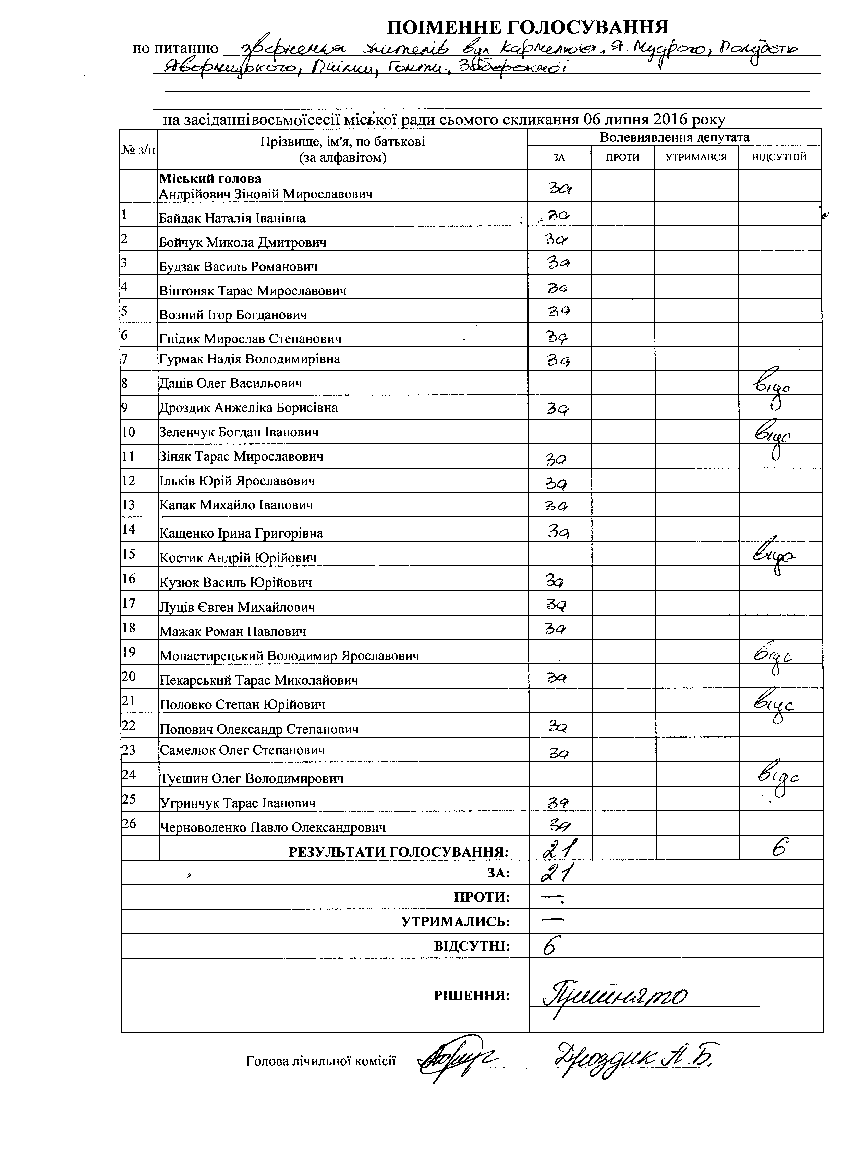 ПОІМЕННЕ ГОЛОСУВАННЯ
по питанню звернення жителів вул Кармелюка, Я. Мудрого,
Яворницького, Гонти,
на засіданнівосьмоїсесії міської ради сьомого скликання 06 липня 2016 року
№ з/п Прізвище, ім'я, по батькові (за алфавітом) Волевиявлення депутата
ЗА ПРОТИ УТРИМАВСЯ ВІДСУТНІЙ
Міський голова
Андрійович Зіновій Мирославович за
1 Байдак Наталія Іванівна за
2 Бойчук Микола Дмитрович за
3 Будзак Василь Романович за
4 Вінтоняк Тарас Мирославович за
5 Возний Ігор Богданович за
6 Гнідик Мирослав Степанович за
7 Гурмак Надія Володимирівна за
8 Даців Олег Васильович відс
9 Дроздик Анжеліка Борисівна за
10 Зеленчук Богдан Іванович відс
11 Зіняк Тарас Мирославович за
12 Ільків Юрій Ярославович за
13 Капак Михайло Іванович за
14 Кащенко Ірина Григорівна за
15 Костик Андрій Юрійович відс
16 Кузюк Василь Юрійович за
17 Луців Євген Михайлович за
18 Мажак Роман Павлович за
19 Монастирецький Володимир Ярославович відс
20 Пекарський Тарас Миколайович за
21 Половко Степан Юрійович відс
22 Попович Олександр Степанович за
23 Самелюк Олег Степанович за
24 Туєшин Олег Володимирович відс
25 Угринчук Тарас Іванович за
26 Черноволенко Павло Олександрович за
РЕЗУЛЬТАТИ ГОЛОСУВАННЯ: 21 6
ЗА: 21
ПРОТИ: —
УТРИМАЛИСЬ: —
ВІДСУТНІ: 6
РІШЕННЯ: Прийнято
Голова лічильної комісії Дроздик А.Б.